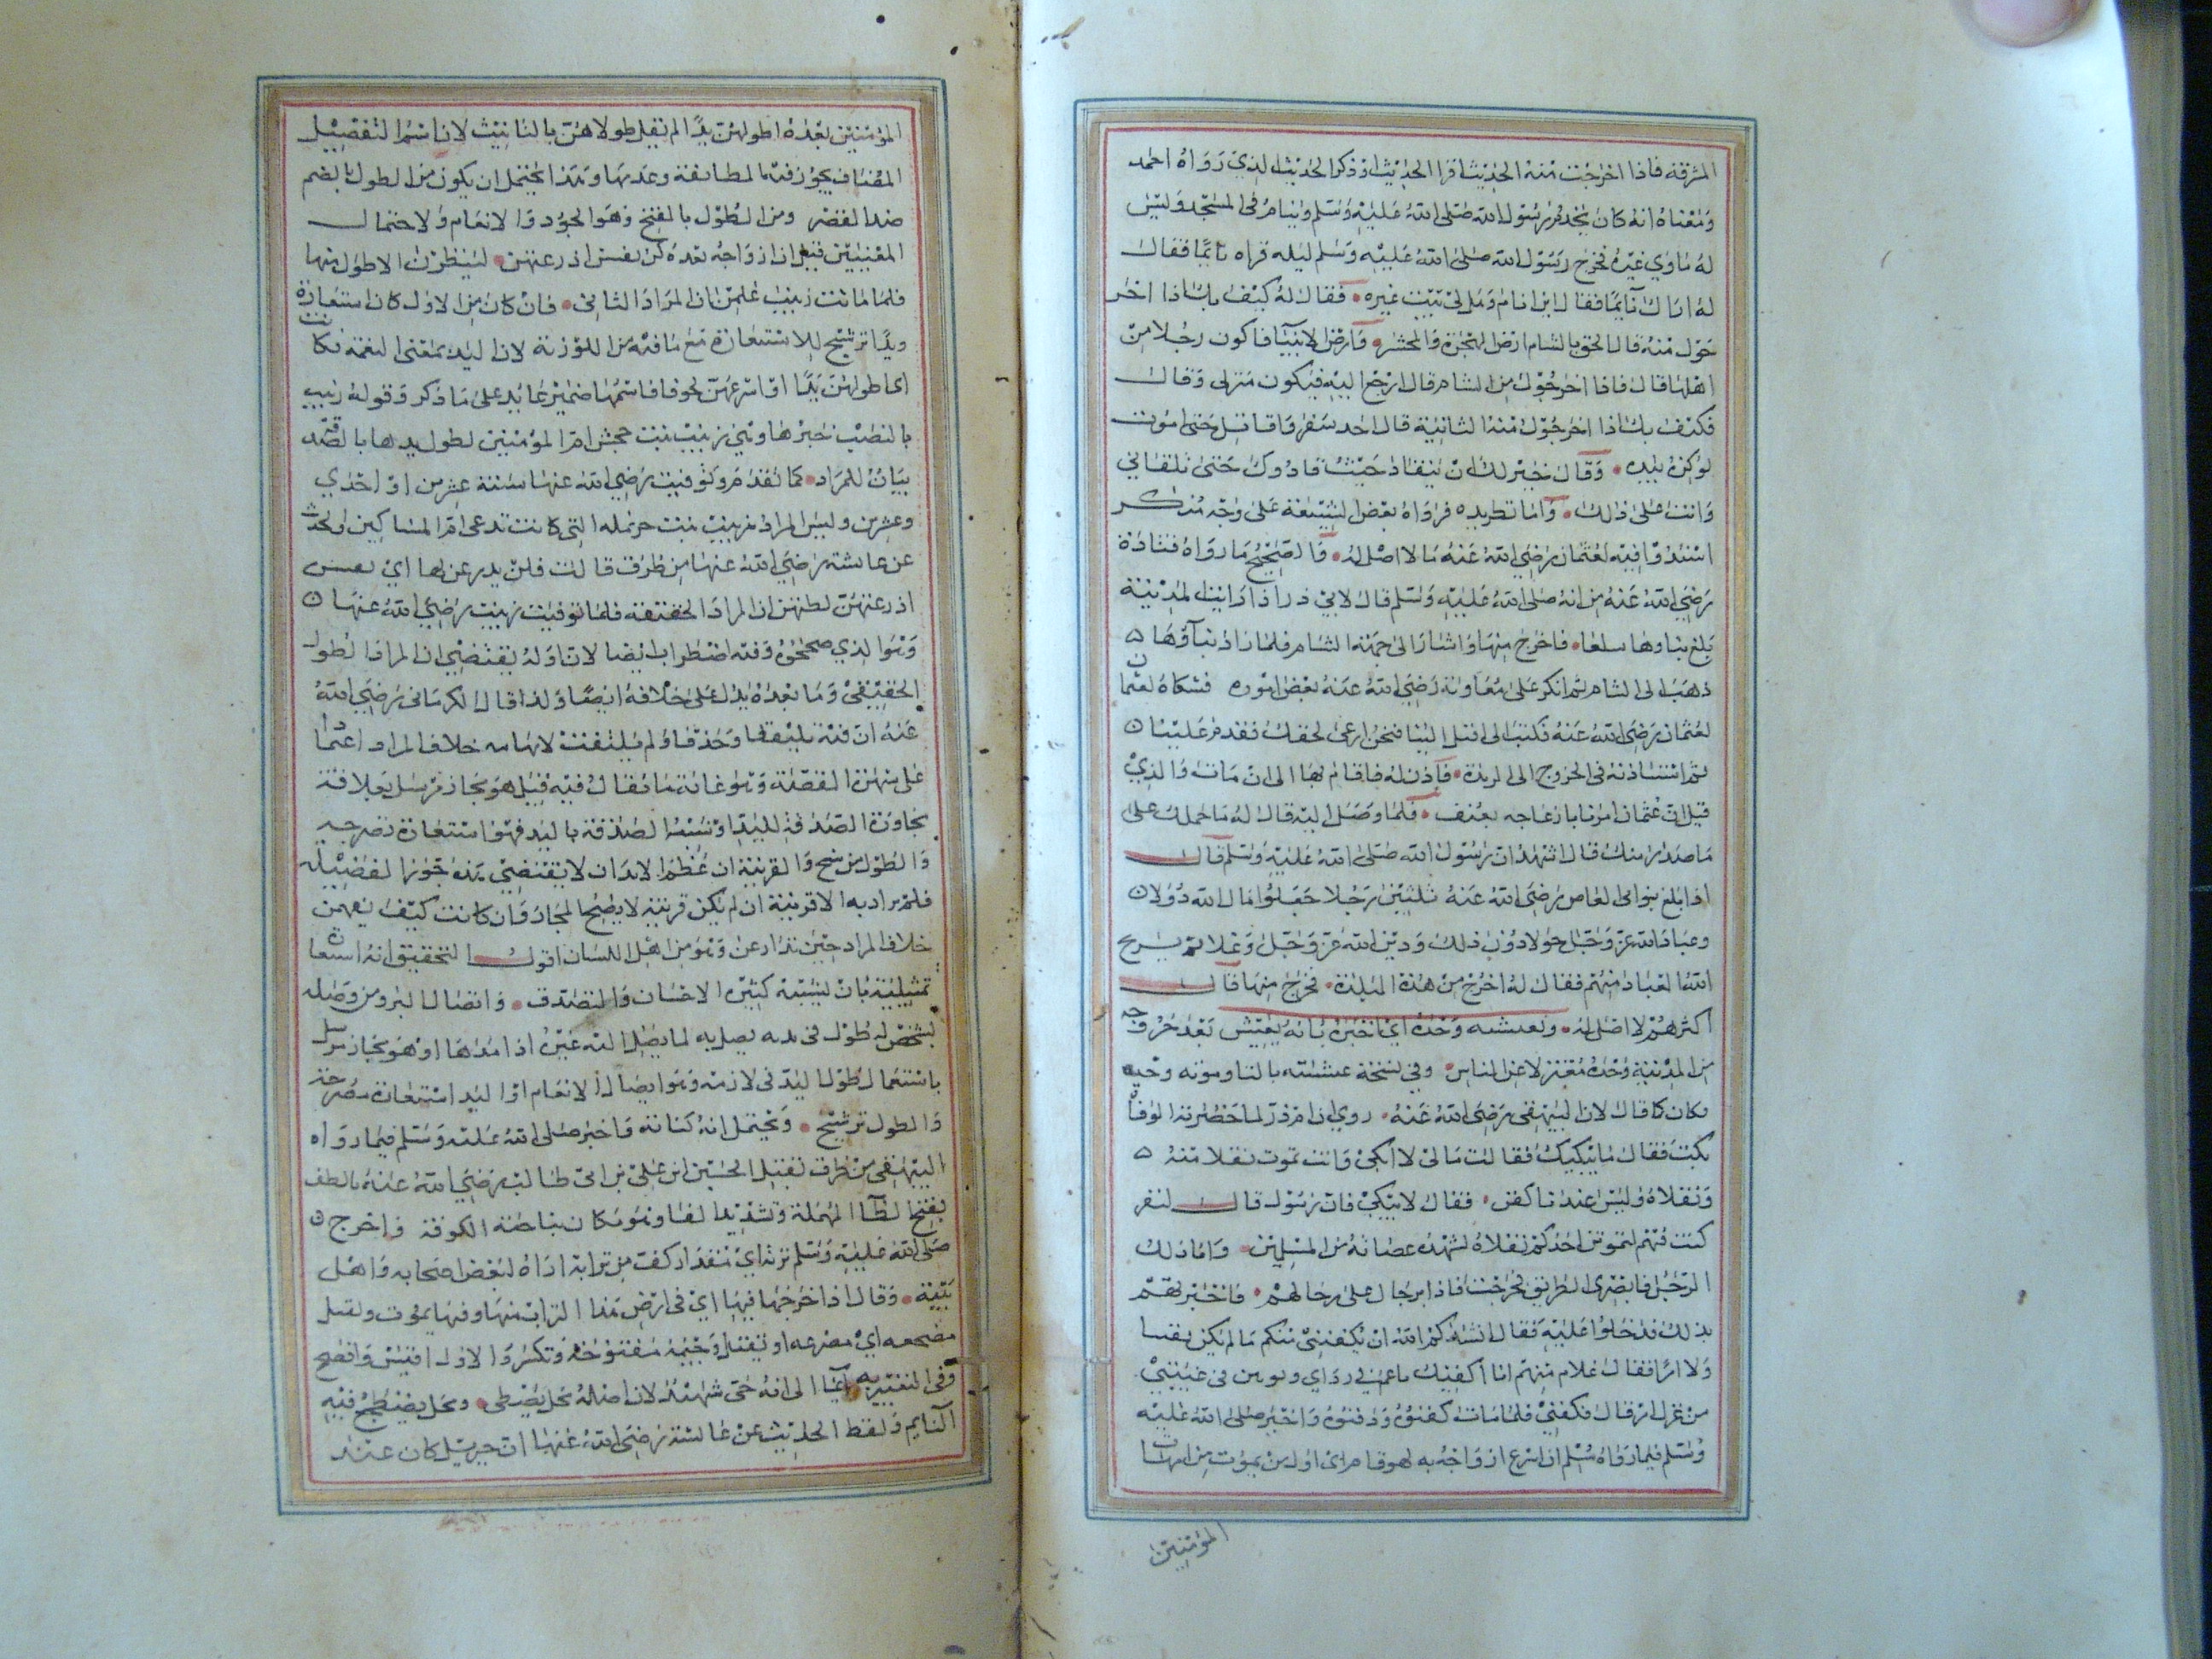 المشرفة فاذا اخرجت منه الحديث اقرا الحديث اذ ذكر الحديث الذي رواه احمد
ومعناه انه كان يخدم رسول الله صلى الله عليه وسلم وينام في المسجد وليس
له ماوي غيره فخرج رسول الله صلى الله عليه وسلم ليله فراه نايما فقال
له اراك نايما فقال اين انام وهل لي بيت غيره فقال له كيف بك اذا اخر
جوك منه قال الحق بالشام ارض الهجرة والمحشر وارض الانبيا فاكون رجلا من
اهلها قال فاذا اخرجوك من الشام قال ارجع اليه فيكون منزلي وقال
فكيف بك اذا اخرجوك منه الثانية قال اخد سيفي واقاتل حتى اموت
وقال خير لك ان ينقاد حيث قادوك حتى تلقاني
وانت على ذلك واما تطريده فرواه بعض الشيعة على وجه منكر
اسندوا فيه لعثمان رضي الله عنه ما لا اصل له والصحيح ما رواه قتادة
رضي الله عنه من انه صلى الله عليه وسلم قال لابي ذر اذا رايت المدينة
بلغ بناوها سلعا فاخرج منها واشار الى جهة الشام فلما زاد بناوها
ذهب الى الشام ثم انكر على معاوية رضي الله عنه بعض اموره فشكاه لعثمان
لعثمان رضي الله عنه فكتب الي اقبل الينا فنحن ارعى لحقك فقدم علينا
ثم استاذنه في الخروج الى الربذة فاذن له فاقام بها الى ان مات والذي
قيل ان عثمان امر بازعاجه بعنف فلما وصل اليه قال له ما حملك على
ما صدر منك قال اشهد ان رسول الله صلى الله عليه وسلم قال
اذا بلغ بنو ابي العاص رضي الله عنه ثلثين رجلا جعلوا مال الله دولا
وعباد الله عز وجل خولا دون ذلك ودين الله عز وجل دغلا ثم يريح
الله العباد منهم فقال له اخرج من هذه البلدة فخرج منها قال
اكثرهم لا اصل له وتعيشه وحده اي اخبره بانه يعيش بعد خروجه
من المدينة وحده معتزلا عن الناس وفي نسخة عيشته بالتا وموته وحيدا
فكان كما قال لان البيهقي رضي الله عنه روي ان ام ذر لما حضرته الوفاة
بكت فقال ما يبكيك فقالت مالي لا ابكي وانت تموت بفلاة منه
وبفلاة وليس عندنا كفن فقال لا تبكي فان رسول قال لنفر
كنت فيهم ليموتن احدكم بفلاة تشهده عصابة من المسلمين وانا ذلك
الرجل فابصري الطريق فخرجت فاذا برجال على رحالهم فاخبرتهم
بذلك فدخلوا عليه فقال انشدكم الله ان يكفنني منكم من لم يكن نقيبا
ولا اميرا فقال غلام منهم انا اكفنك يا عم في رداي وثوبين في عيبتي
من غزل امي قال فكفني فلما مات كفنوه ودفنوه واخبر صلى الله عليه
وسلم فيما رواه مسلم ان اسرع ازواجه به لحوقا مراى اول من يموت من امهات
المؤمنين
المؤمنين بعده اطولهن يدا لم يقل طولاهن بالتانيث لان اسم التفضيل
المضاف يجوز فيه المطابقة وعدمها وهذا يحتمل ان يكون من الطول بالضم
ضد القصر ومن الطول بالفتح وهو الجود والانعام ولاحتمال
المعنيين قيل ان ازواجه بعده كن يقسن اذرعهن لينظرن الاطول منها
فلما ماتت زينب علمن ان المراد الثاني فان كان من الاول كان استعارة
ويدا ترشيح للاستعارة مع ما فيه من التورية لان اليد بمعنى النعمة فكانت
اي اطولهن يدا او اسرعهن لحوقا فاسمها ضمير عايد على ما ذكر وقوله زينب
بالنصب خبرها وهي زينب بنت جحش ام المؤمنين لطول يدها بالصدقة
بيان للمراد كما تقدم وتوفيت رضي الله عنها سنة عشرين او احدي
وعشرين وليس المراد زينب بنت خزيمة التي كانت تدعى ام المساكين والحديث
عن عايشة رضي الله عنها من طرق قالت فلن يذرعن لها اي يقسن
اذرعهن لظنهن ان المراد الحقيقة فلما توفيت زينب رضي الله عنها
وهو الذي صححوه وفيه اضطراب ايضا لان اوله يقتضي ان المراد الطول
الحقيقي وما بعده يدل على خلافه ايضا ولذا قال الكرماني رضي الله
عنه ان فيه تلفيقا وحذفا ولم يلتفت لايهامه خلاف المراد اعتمادا
على شهرة القصة وهو غاية ما يقال فيه قيل هو مجاز مرسل بعلاقة
مجاورة الصدقة لليد او شبه الصدقة باليد فهو استعارة تصريحيه
والطول ترشيح والقرينة ان عظم الابدان لا يقتضي هذه جوزا لفضيله
فلم يراد به الا قرينة ان لم يكن قرينة لا يصح المجاز وان كانت كيف يفهمن
خلاف المراد حين تذارعن وهو من اهل اللسان اقول التحقيق انه استعارة
تمثيلية بان يشبه كثير الاحسان والتصدق واتصال البر ومن وصله
بشخص له طول في يده يصل به لما يصل اليه غيره اذا مدها او هو مجاز مرسل
باستعمال طول اليد في لازمه وهو ايصال الانعام او اليد استعارة مصرحة
والطول ترشيح ويحتمل انه كناية واخبر صلى الله عليه وسلم فيما رواه
البيهقي من طرق بقتل الحسين ابن علي بن ابي طالب رضي الله عنه بالطف
بفتح الطاء المهملة وتشديد الفا وهو مكان بناحية الكوفة واخرج
صلى الله عليه وسلم تربة اي مقدار كف من ترابه اراه لبعض اصحابه واهل
بيته وقال اذا اخرجها فيها اي في ارض هذا التراب منها وفيها يموت ولقيل
مضجعه اي مصرعه او يقتل وجيمه مفتوحة وتكسر والاول اقيس وافصح
وفي التعبير به ايما الى انه حي شهيد لان اصله محل يضطجع فيه
النايم ولفظ الحديث عن عايشة رضي الله عنها ان جبريل كان عند